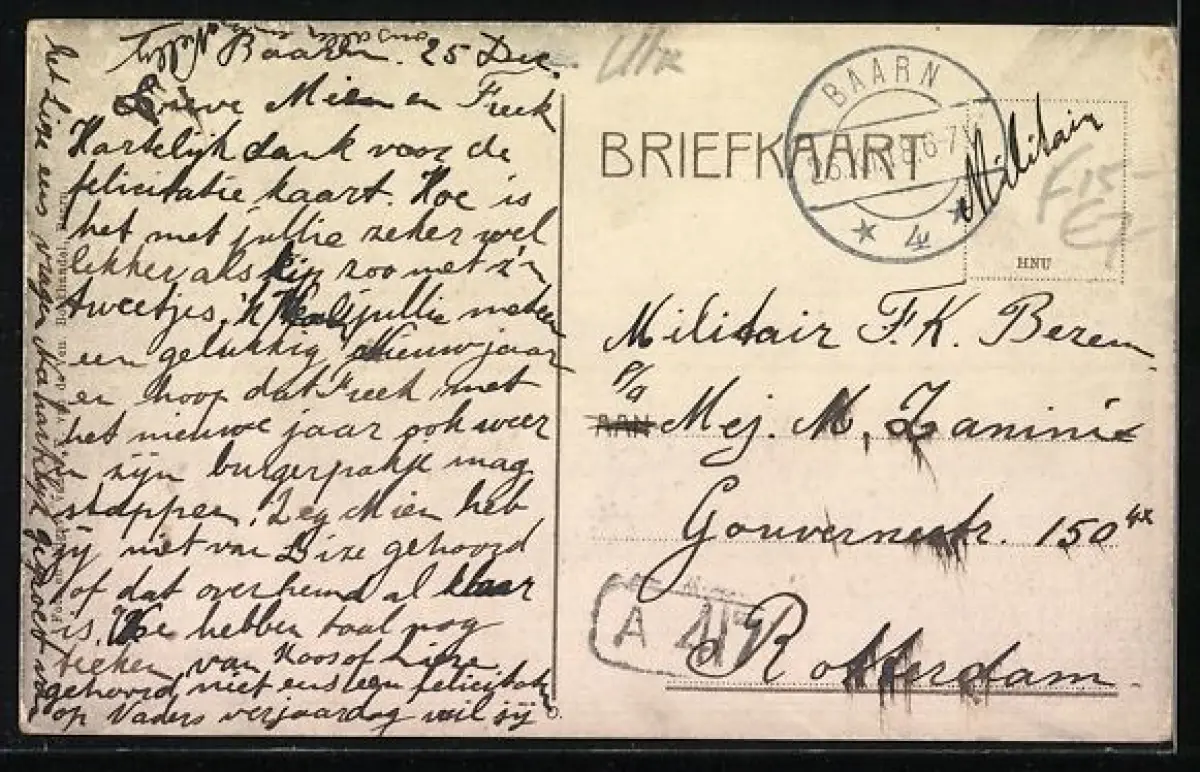 Baarn. 25 Dec.
Lieve Mien en Freek
Hartelijk dank voor de
felicitatie kaart. Hoe is
het met jullie zeker wel
lekker als kip zoo met z'n
tweetjes, 'k jullie meteen
een gelukkig Nieuwjaar
en hoop dat Freek met
het nieuwe jaar ook weer
in zijn burgerpakje mag
stappen. Zeg Mien heb
jij niet van Lize gehoord
of dat overhemd al klaar
is. We hebben taal nog
teeken van Koos of Lize
gehoord, niet eens een felicitatie
op Vaders verjaardag wil jij
het Lize eens vragen gegroet van
ons allen en
Nelly
BRIEFKAART
BAARN
4
Militair
HNU
F15-
Militair F.K. Berem
p/a
AAN Mej. M. Zaninie
Gouvernestr. 150
Rotterdam
A 47